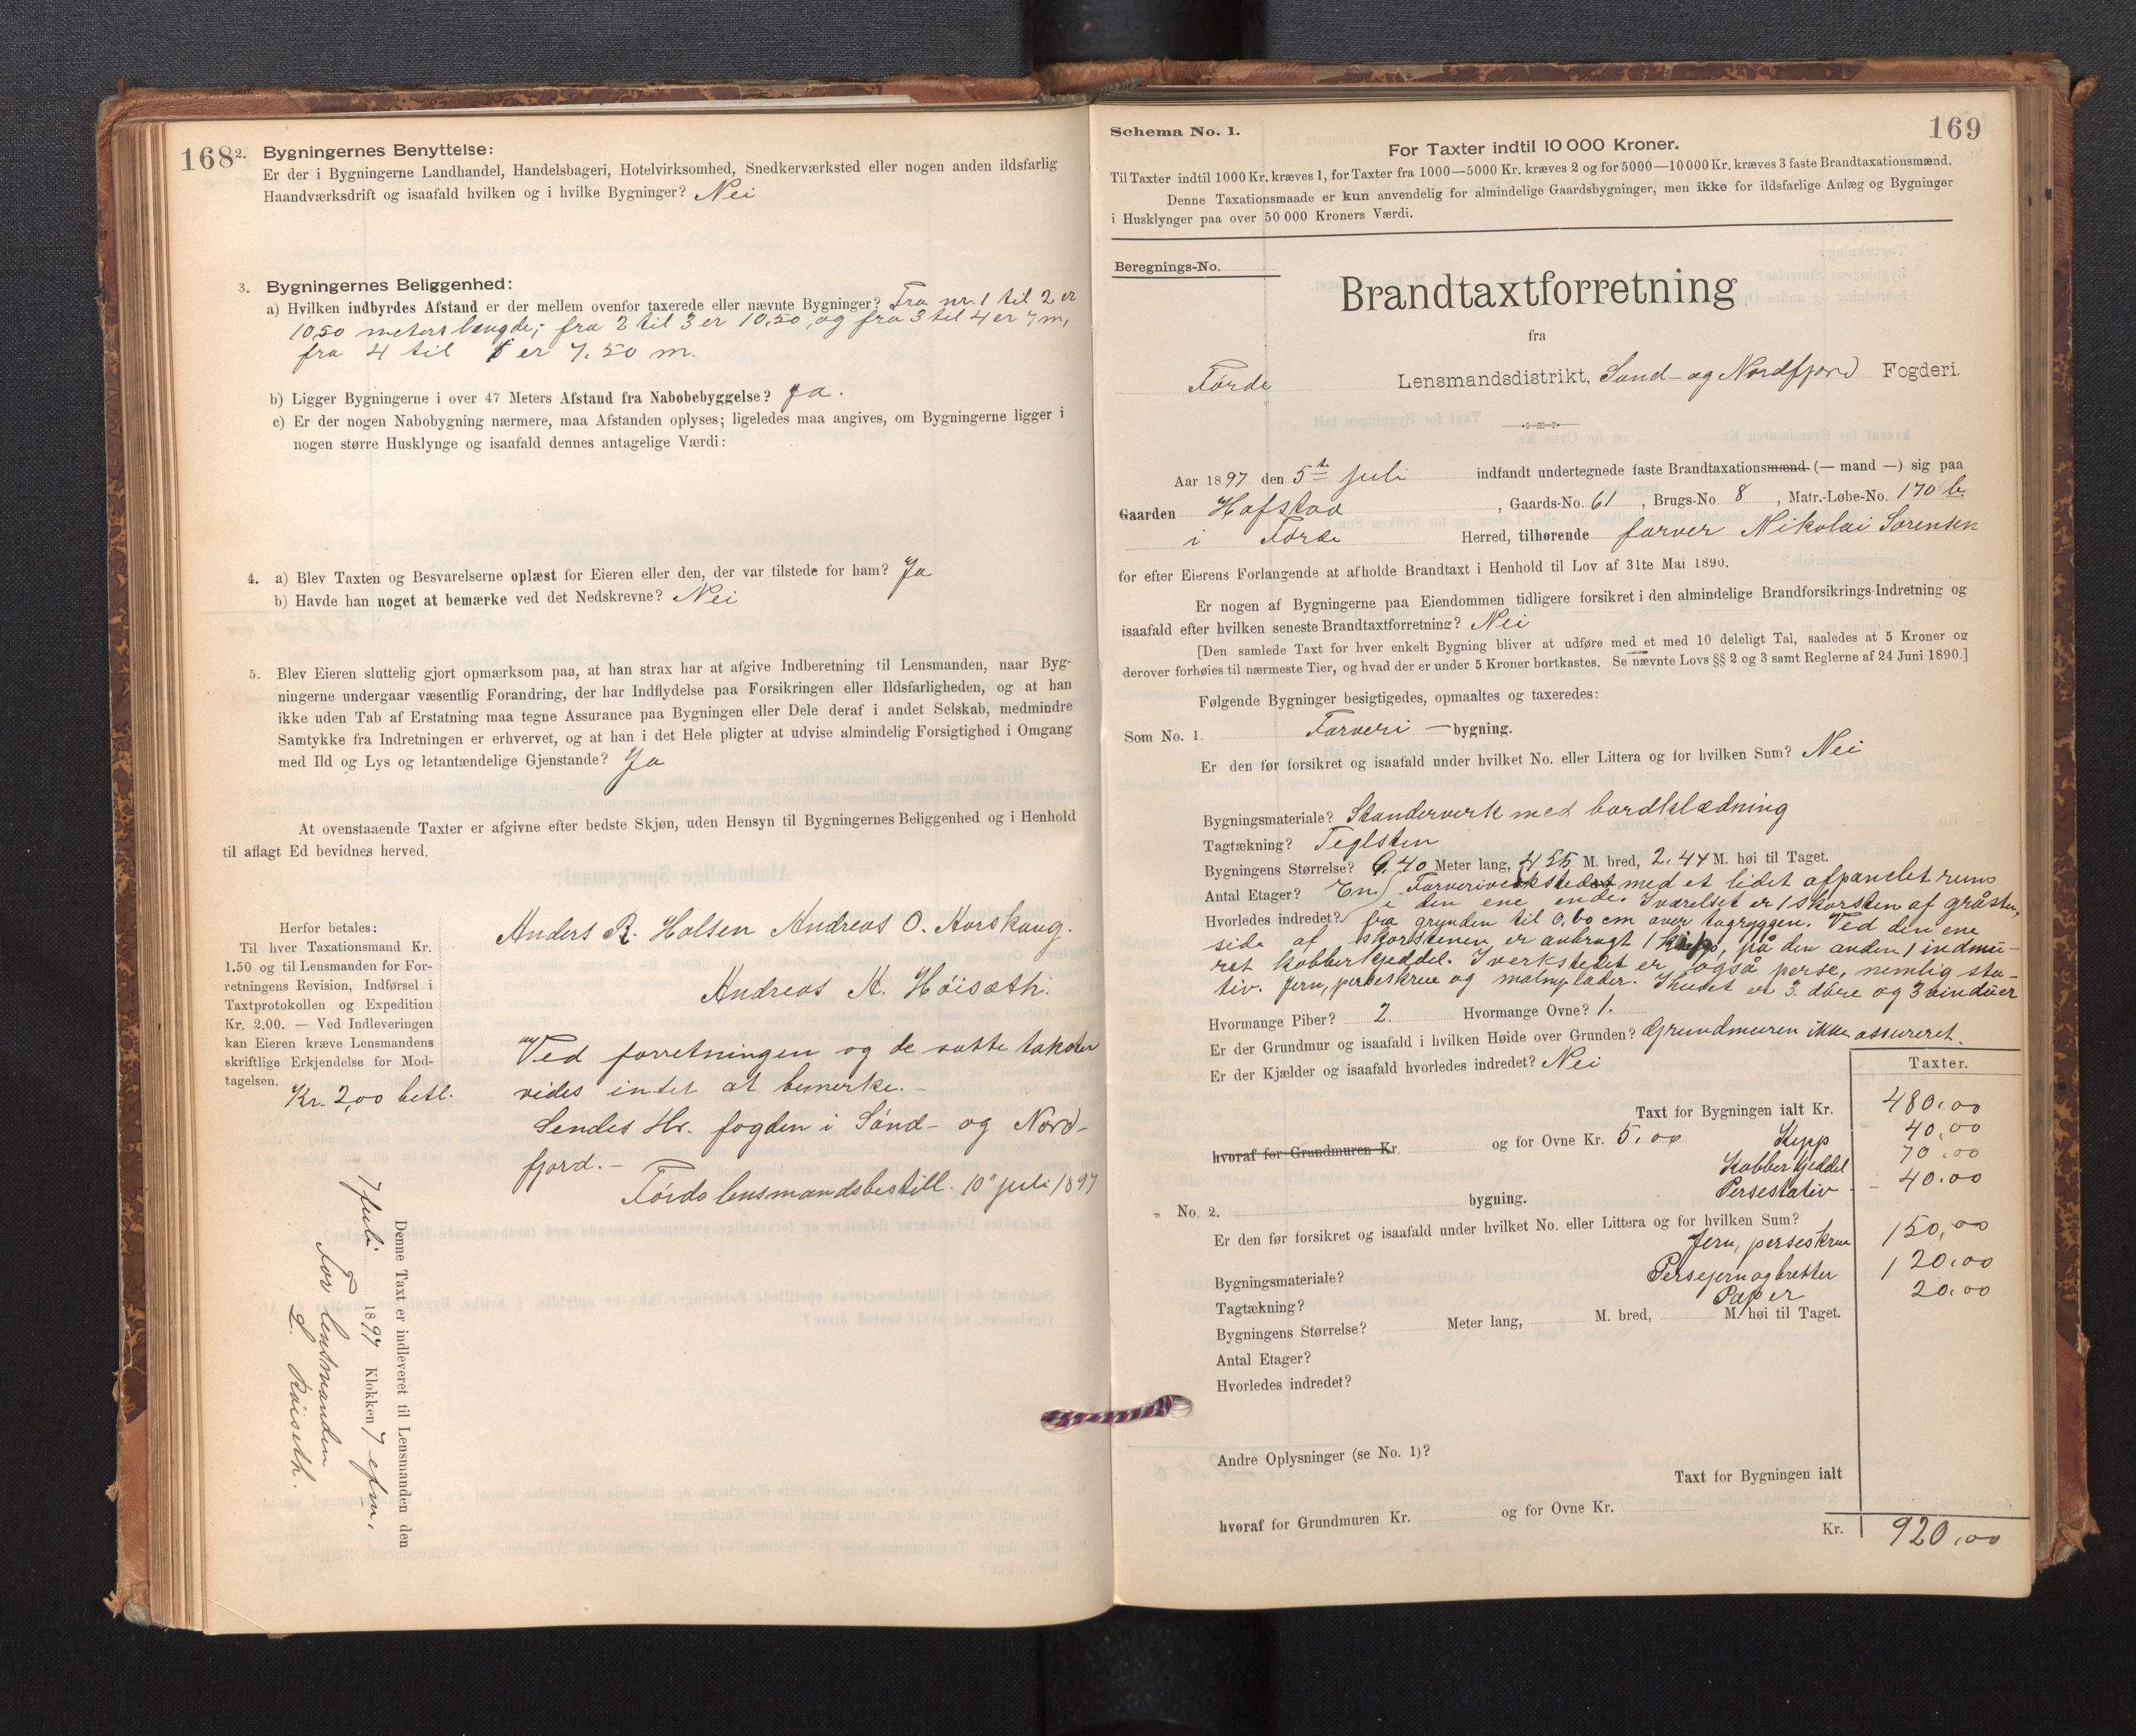 168
2. Bygningernes Benyttelse:
Er der i Bygningerne Landhandel, Handelsbageri, Hotelvirksomhed, Snedkerværksted eller nogen anden ildsfarlig
Haandværksdrift og isaafald hvilken og i hvilke Bygninger? Nei
3. Bygningernes Beliggenhed:
a) Hvilken indbyrdes Afstand er der mellem ovenfor taxerede eller nævnte Bygninger? Fra nr. 1 til 2 er
10,50 meters længde; fra 2 til 3 er 10,50, og fra 3 til 4 er 7 m,
fra 4 til er 7.50 m.
b) Ligger Bygningerne i over 47 Meters Afstand fra Nabobebyggelse? Ja.
c) Er der nogen Nabobygning nærmere, maa Afstanden oplyses; ligeledes maa angives, om Bygningerne ligger i
nogen større Husklynge og isaafald dennes antagelige Værdi:
4. a) Blev Taxten og Besvarelserne oplæst for Eieren eller den, der var tilstede for ham? Ja
b) Havde han noget at bemærke ved det Nedskrevne? Nei
5. Blev Eieren sluttelig gjort opmærksom paa, at han strax har at afgive Indberetning til Lensmanden, naar Byg-
ningerne undergaar væsentlig Forandring, der har Indflydelse paa Forsikringen eller Ildsfarligheden, og at han
ikke uden Tab af Erstatning maa tegne Assurance paa Bygningen eller Dele deraf i andet Selskab, medmindre
Samtykke fra Indretningen er erhvervet, og at han i det Hele pligter at udvise almindelig Forsigtighed i Omgang
med Ild og Lys og letantændelige Gjenstande? Ja
At ovenstaaende Taxter er afgivne efter bedste Skjøn, uden Hensyn til Bygningernes Beliggenhed og i Henhold
til aflagt Ed bevidnes herved.
Anders R. Halsen Andreas O. Horskaug.
Andreas A. Höisæth.
Herfor betales:
Til hver Taxationsmand Kr.
1.50 og til Lensmanden for For-
retningens Revision, Indførsel i
Taxtprotokollen og Expedition
Kr. 2.00. — Ved Indleveringen
kan Eieren kræve Lensmandens
skriftlige Erkjendelse for Mod-
tagelsen.
Kr. 2,00 betl.
Ved forretningen og de satte takster
vides intet at bemerke. –
Sendes Hr. fogden i Sönd- og Nord-
fjord. –
Förde lensmandsbestill. 10 juli 1897
Denne Taxt er indleveret til Lensmanden den
7 Juli 1897 Klokken 7 efm.
For lensmanden
L. Röiseth.
169
Schema No. 1.
For Taxter indtil 10 000 Kroner.
Til Taxter indtil 1000 Kr. kræves 1, for Taxter fra 1000—5000 Kr. kræves 2 og for 5000—10 000 Kr. kræves 3 faste Brandtaxationsmænd.
Denne Taxationsmaade er kun anvendelig for almindelige Gaardsbygninger, men ikke for ildsfarlige Anlæg og Bygninger
i Husklynger paa over 50 000 Kroners Værdi.
Beregnings-No.
Brandtaxtforretning
fra
Förde Lensmandsdistrikt, Sønd- og Nordfjord Fogderi.
Aar 1897 den 5te juli indfandt undertegnede faste Brandtaxationsmænd (— mand —) sig paa
Gaarden Hafstad, Gaards-No. 61, Brugs-No 8, Matr.-Løbe-No. 170 b.
i Förde Herred, tilhørende farver Nikolai Sørensen
for efter Eierens Forlangende at afholde Brandtaxt i Henhold til Lov af 31te Mai 1890.
Er nogen af Bygningerne paa Eiendommen tidligere forsikret i den almindelige Brandforsikrings-Indretning og
isaafald efter hvilken seneste Brandtaxtforretning? Nei
[Den samlede Taxt for hver enkelt Bygning bliver at udføre med et med 10 deleligt Tal, saaledes at 5 Kroner og
derover forhøies til nærmeste Tier, og hvad der er under 5 Kroner bortkastes. Se nævnte Lovs §§ 2 og 3 samt Reglerne af 24 Juni 1890.]
Følgende Bygninger besigtigedes, opmaaltes og taxeredes:
Som No. 1. Farveri — bygning.
Er den før forsikret og isaafald under hvilket No. eller Littera og for hvilken Sum? Nei
Bygningsmateriale? Standerverk med bordklædning
Tagtækning? Teglsten
Bygningens Størrelse? 9.40 Meter lang, 4.55 M. bred, 2.44 M. høi til Taget.
Antal Etager? En) Farveriverkstedet med et lidet afpanelet rum
i den ene ende. I værelset er 1 skorsten af gråsten,
Hvorledes indredet? fra grunden til 0.60 cm over tagryggen. Ved den ene
side af skorstenen er anbragt 1 kipp, på den anden 1 indmu-
ret kobberkjeddel. I verkstedet er også perse, nemlig sta-
tiv. jern, perseskrue og . I huset er 3 döre og 3 vinduer
Hvormange Piber? 2. Hvormange Ovne? 1.
Er der Grundmur og isaafald i hvilken Høide over Grunden? Grundmuren ikke assureret.
Er der Kjælder og isaafald hvorledes indredet? Nei
Taxter.
Taxt for Bygningen ialt Kr. 480.00
hvoraf for Grundmuren Kr. og for Ovne Kr. 5.00 Kipp 40.00
Kobberkjeddel 70.00
Persestativ - 40.00
„ No. 2. bygning.
Er den før forsikret og isaafald under hvilket No. eller Littera og for hvilken Sum?
Jern, perseskrue 150,00
Bygningsmateriale? Persejern og bretter 120.00
Tagtækning? Papir 20.00
Bygningens Størrelse? Meter lang, M. bred, M. høi til Taget.
Antal Etager?
Hvorledes indredet?
Andre Oplysninger (se No. 1)?
Taxt for Bygningen ialt
hvoraf for Grundmuren Kr. og for Ovne Kr.
Kr. 920.00